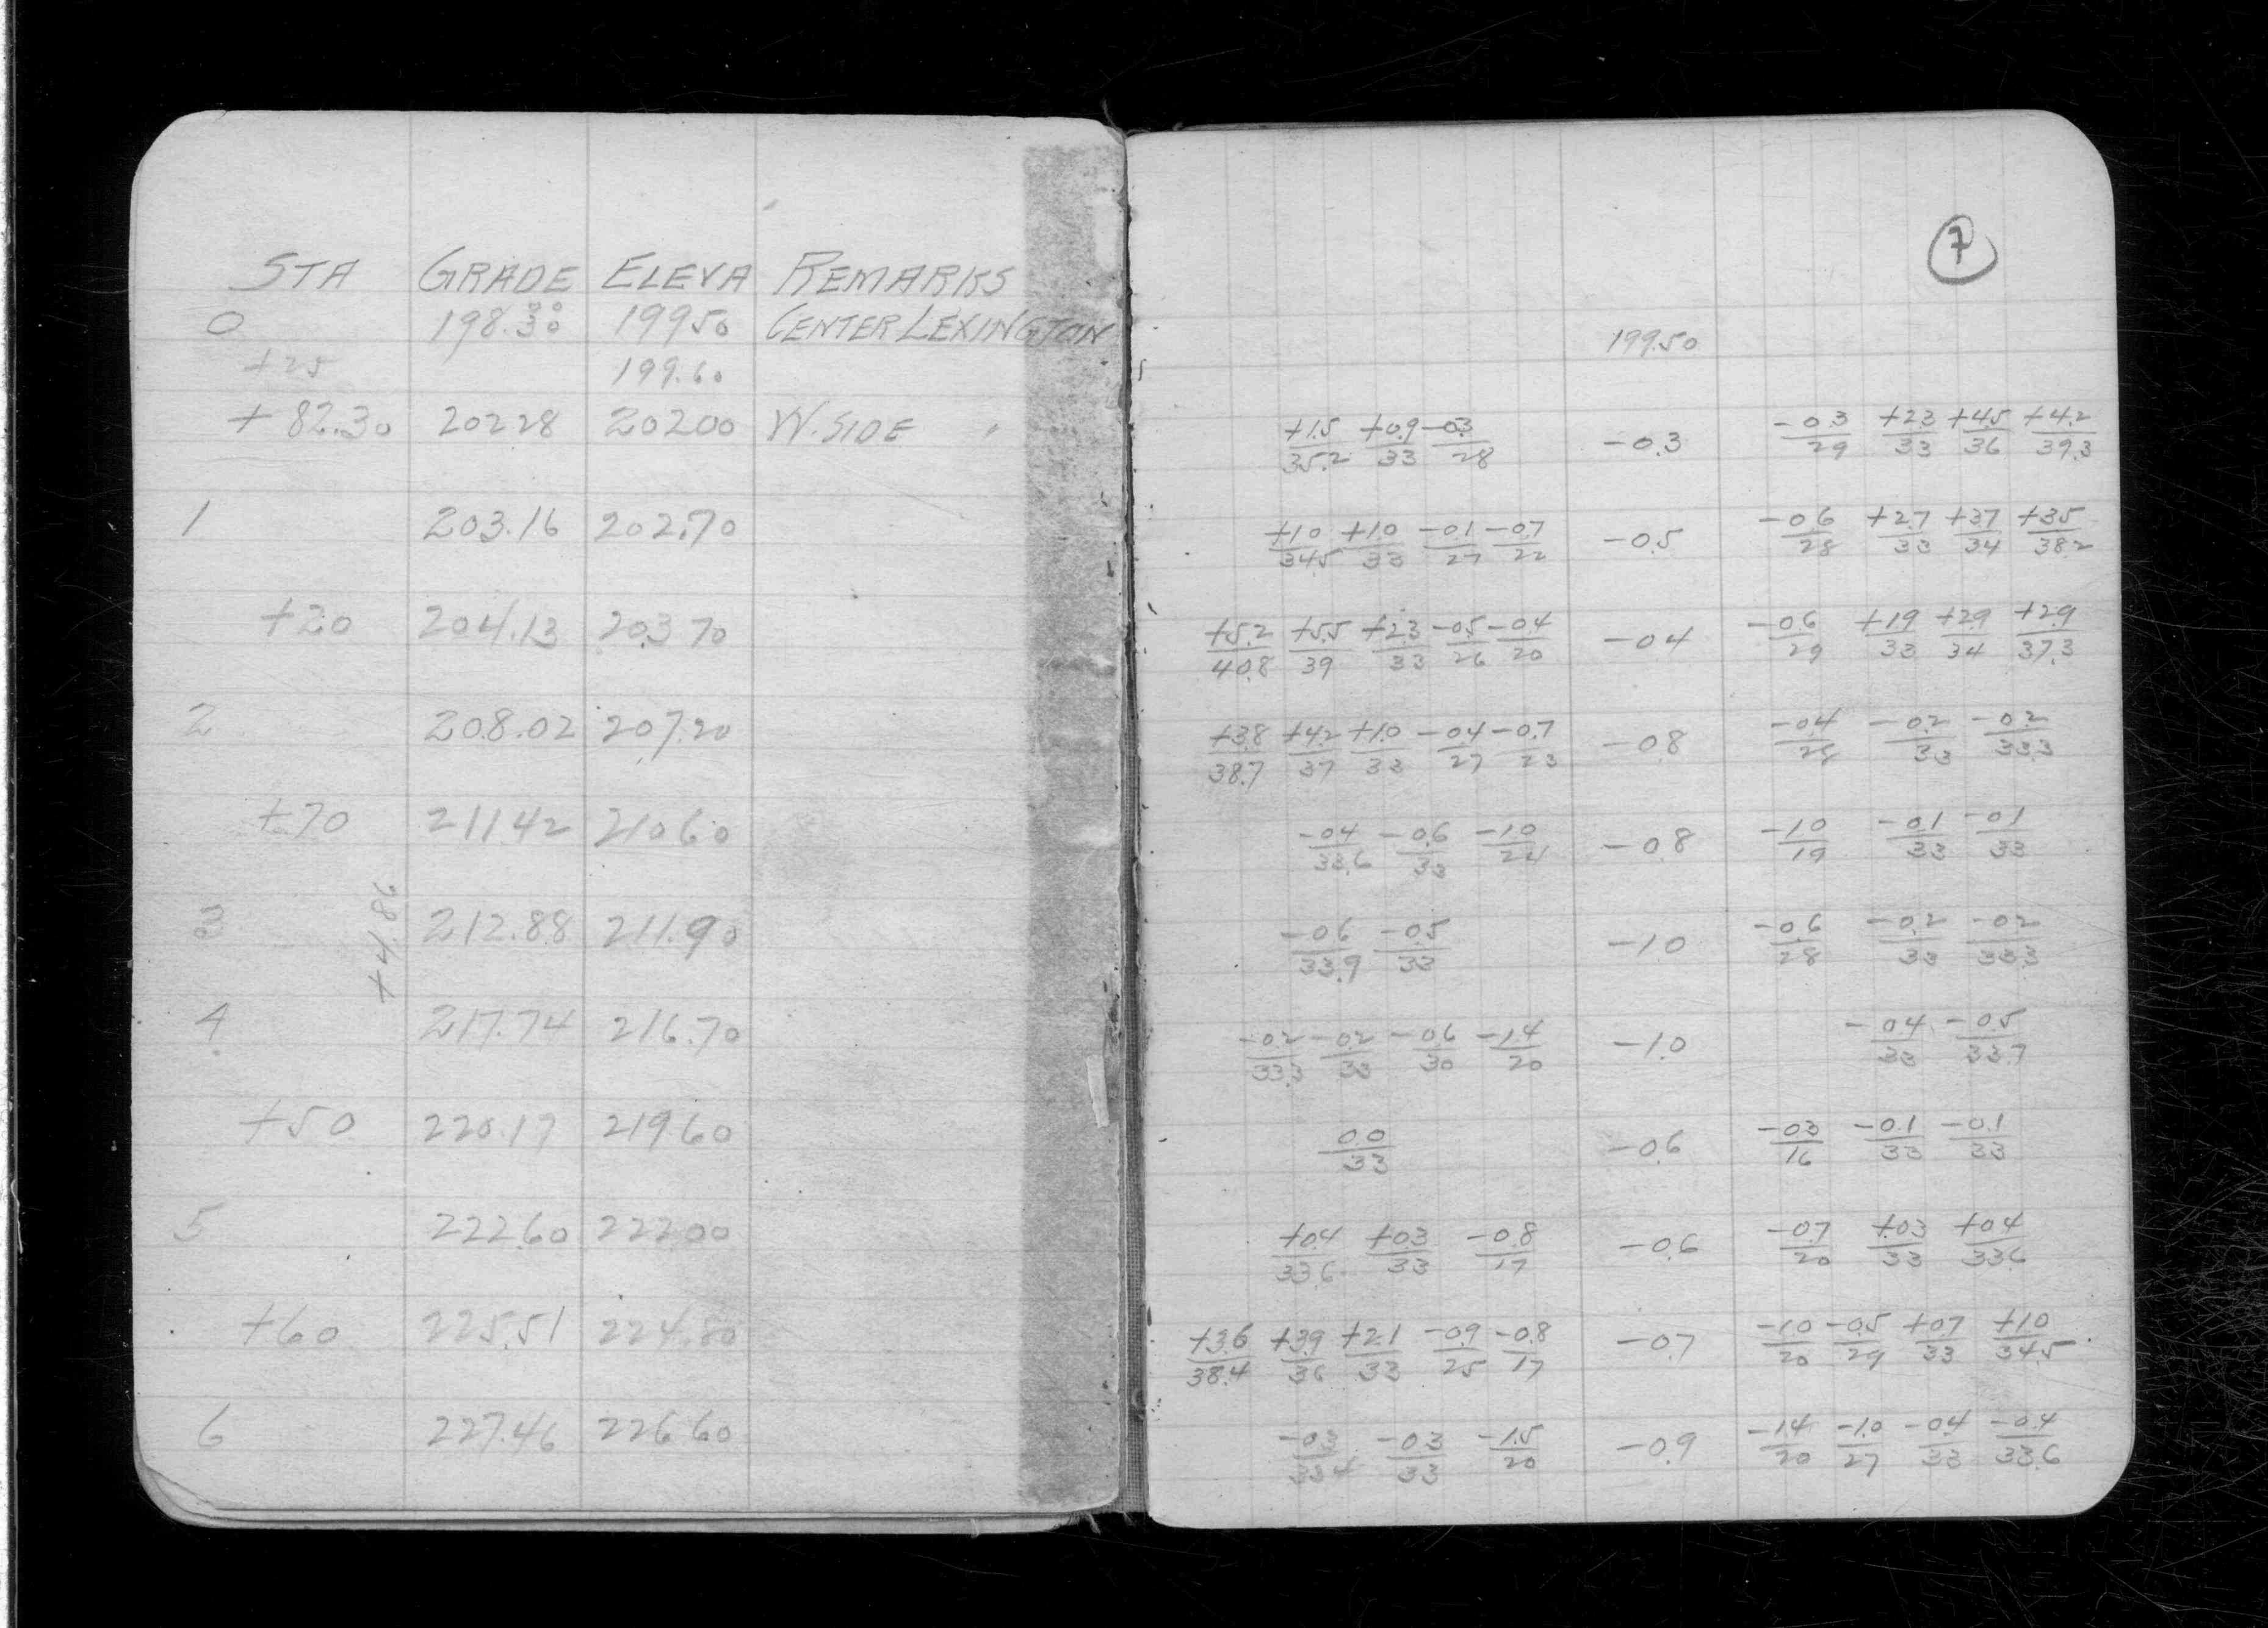 STA GRADE ELEVA REMARKS
0 198.30 199.50 CENTER LEXINGTON
+25 199.60
+82.30 202.28 202.00 W. SIDE "
1 203.16 202.70
+20 204.13 203.70
2 208.02 207.20
+70 211.42 210.60
3 212.88 211.90
+4.86
4 217.74 216.70
+50 220.17 219.60
5 222.60 222.00
+60 225.51 224.80
6 227.46 226.60
7
199.50
+1.5 +0.9 -0.3 -0.3 -0.3 +2.3 +4.5 +4.2
35.2 33 28 29 33 36 39.3
+1.0 +1.0 -0.1 -0.7 -0.5 -0.6 +2.7 +3.7 +3.5
34.5 33 27 22 28 33 34 38.2
+5.2 +5.5 +2.3 -0.5 -0.4 -0.4 -0.6 +1.9 +2.9 +2.9
40.8 39 33 26 20 29 33 34 37.3
+3.8 +4.2 +1.0 -0.4 -0.7 -0.8 -0.4 -0.2 -0.2
38.7 37 33 27 23 28 33 33.3
-0.4 -0.6 -1.0 -0.8 -1.0 -0.1 -0.1
33.6 33 24 19 33 33
-0.6 -0.5 -1.0 -0.6 -0.2 -0.2
33.9 33 28 33 33.3
-0.2 -0.2 -0.6 -1.4 -1.0 -0.4 -0.5
33.3 33 30 20 33 33.7
0.0 -0.6 -0.3 -0.1 -0.1
33 16 33 33
+0.4 +0.3 -0.8 -0.6 -0.7 +0.3 +0.4
33.6 33 17 20 33 33.6
+3.6 +3.9 +2.1 -0.9 -0.8 -0.7 -1.0 -0.5 +0.7 +1.0
38.4 36 33 25 17 20 29 33 34.5
-0.3 -0.3 -1.5 -0.9 -1.4 -1.0 -0.4 -0.4
33.4 33 20 20 27 33 33.6